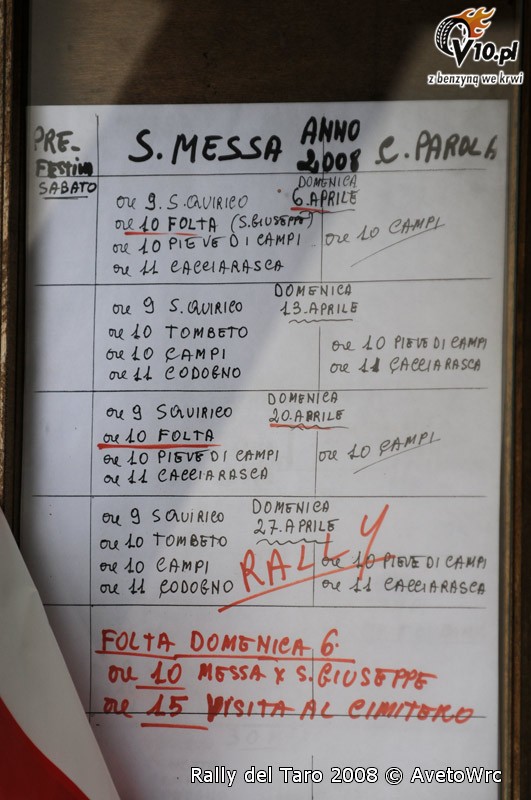 V10.pl
z benzyną we krwi
PRE-
FESTIVA
SABATO
S. MESSA
ANNO
2008
C. PAROLA
DOMENICA
6 APRILE
ore 9 S. QUIRICO
ore 10 FOLTA (S. GIUSEPPE)
ore 10 PIEVE DI CAMPI
ore 11 CACCIARASCA
ore 10 CAMPI
DOMENICA
13 APRILE
ore 9 S. QUIRICO
ore 10 TOMBETO
ore 10 CAMPI
ore 11 CODOGNO
ore 10 PIEVE DI CAMPI
ore 11 CACCIARASCA
DOMENICA
20 APRILE
ore 9 SQUIRICO
ore 10 FOLTA
ore 10 PIEVE DI CAMPI
ore 11 CACCIARASCA
ore 10 CAMPI
DOMENICA
27 APRILE
ore 9 SQUIRICO
ore 10 TOMBETO
ore 10 CAMPI
ore 11 CODOGNO
RALLY
ore 10 PIEVE DI CAMPI
ore 11 CACCIARASCA
FOLTA DOMENICA 6.
ore 10 MESSA X S. GIUSEPPE
ore 15 VISITA AL CIMITERO
Rally del Taro 2008 © AvetoWrc